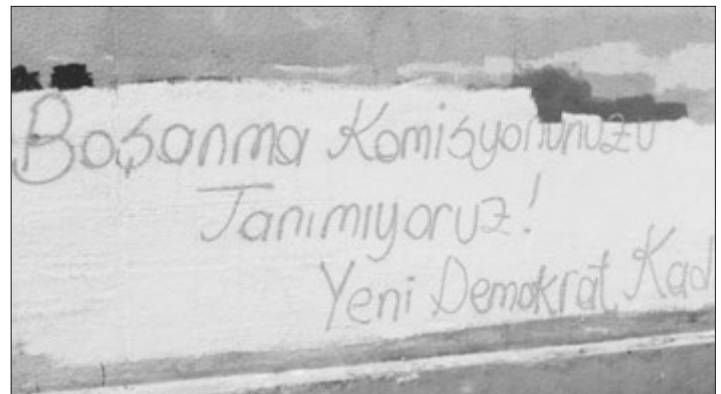 Boşanma Komisyonunuzu
Tanımıyoruz!
Yeni Demokrat Kad